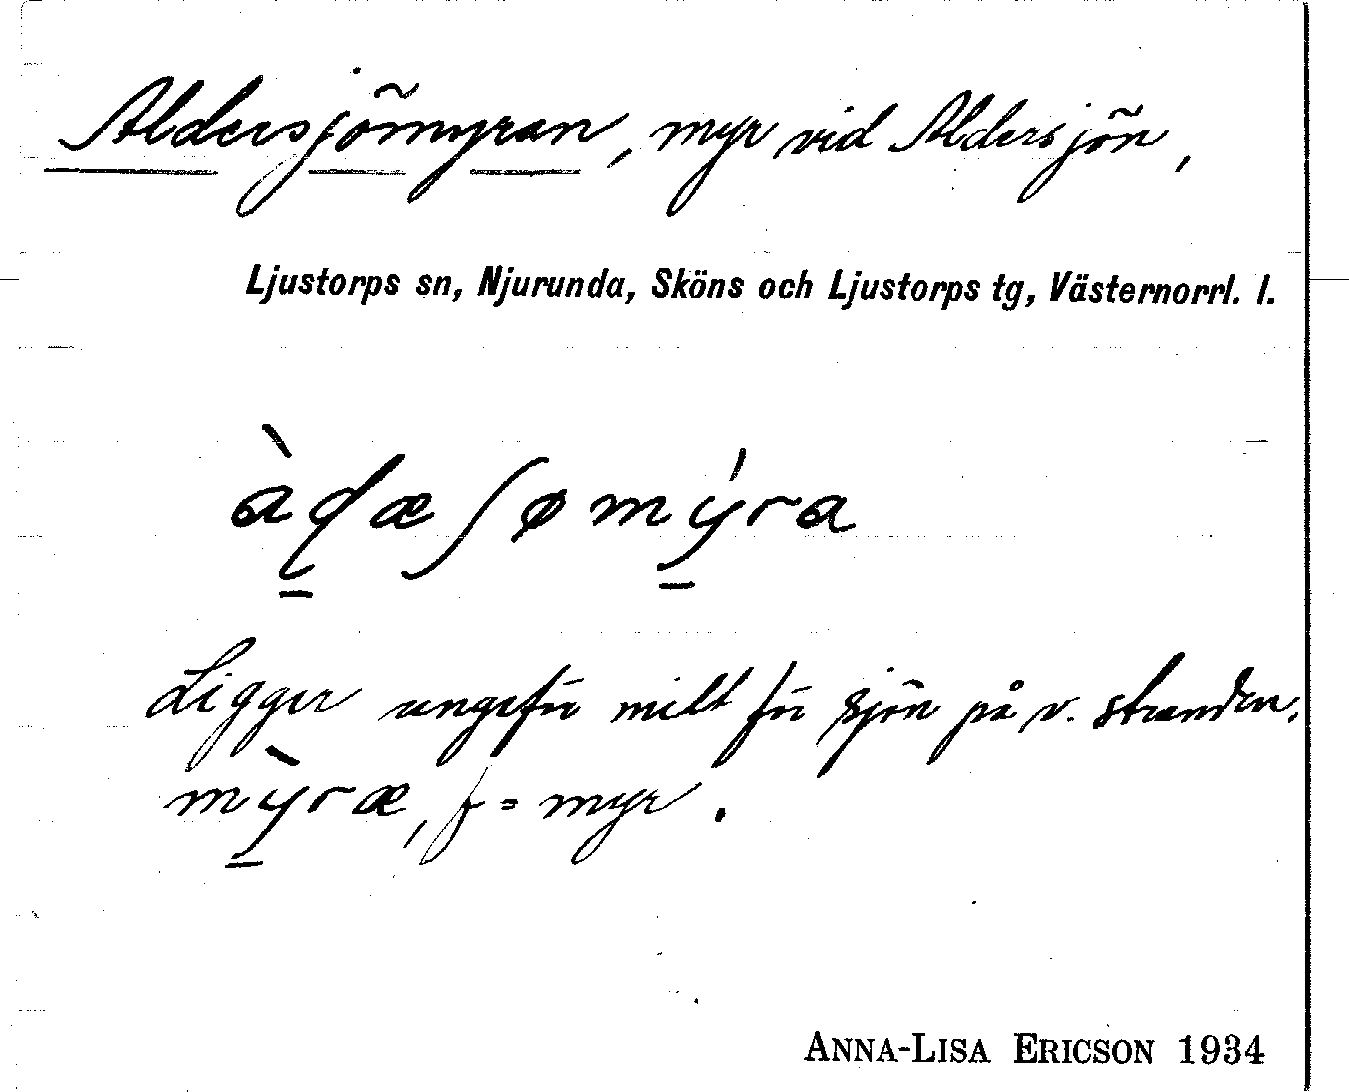 Aldersjömyran, myr vid Aldersjön,
Ljustorps sn, Njurunda, Sköns och Ljustorps tg, Västernorrl. l.
àɖæʃømýra
Ligger ungefär mitt för sjön på v. stranden.
mỳræ, f = myr.
ANNA-LISA ERICSON 1934